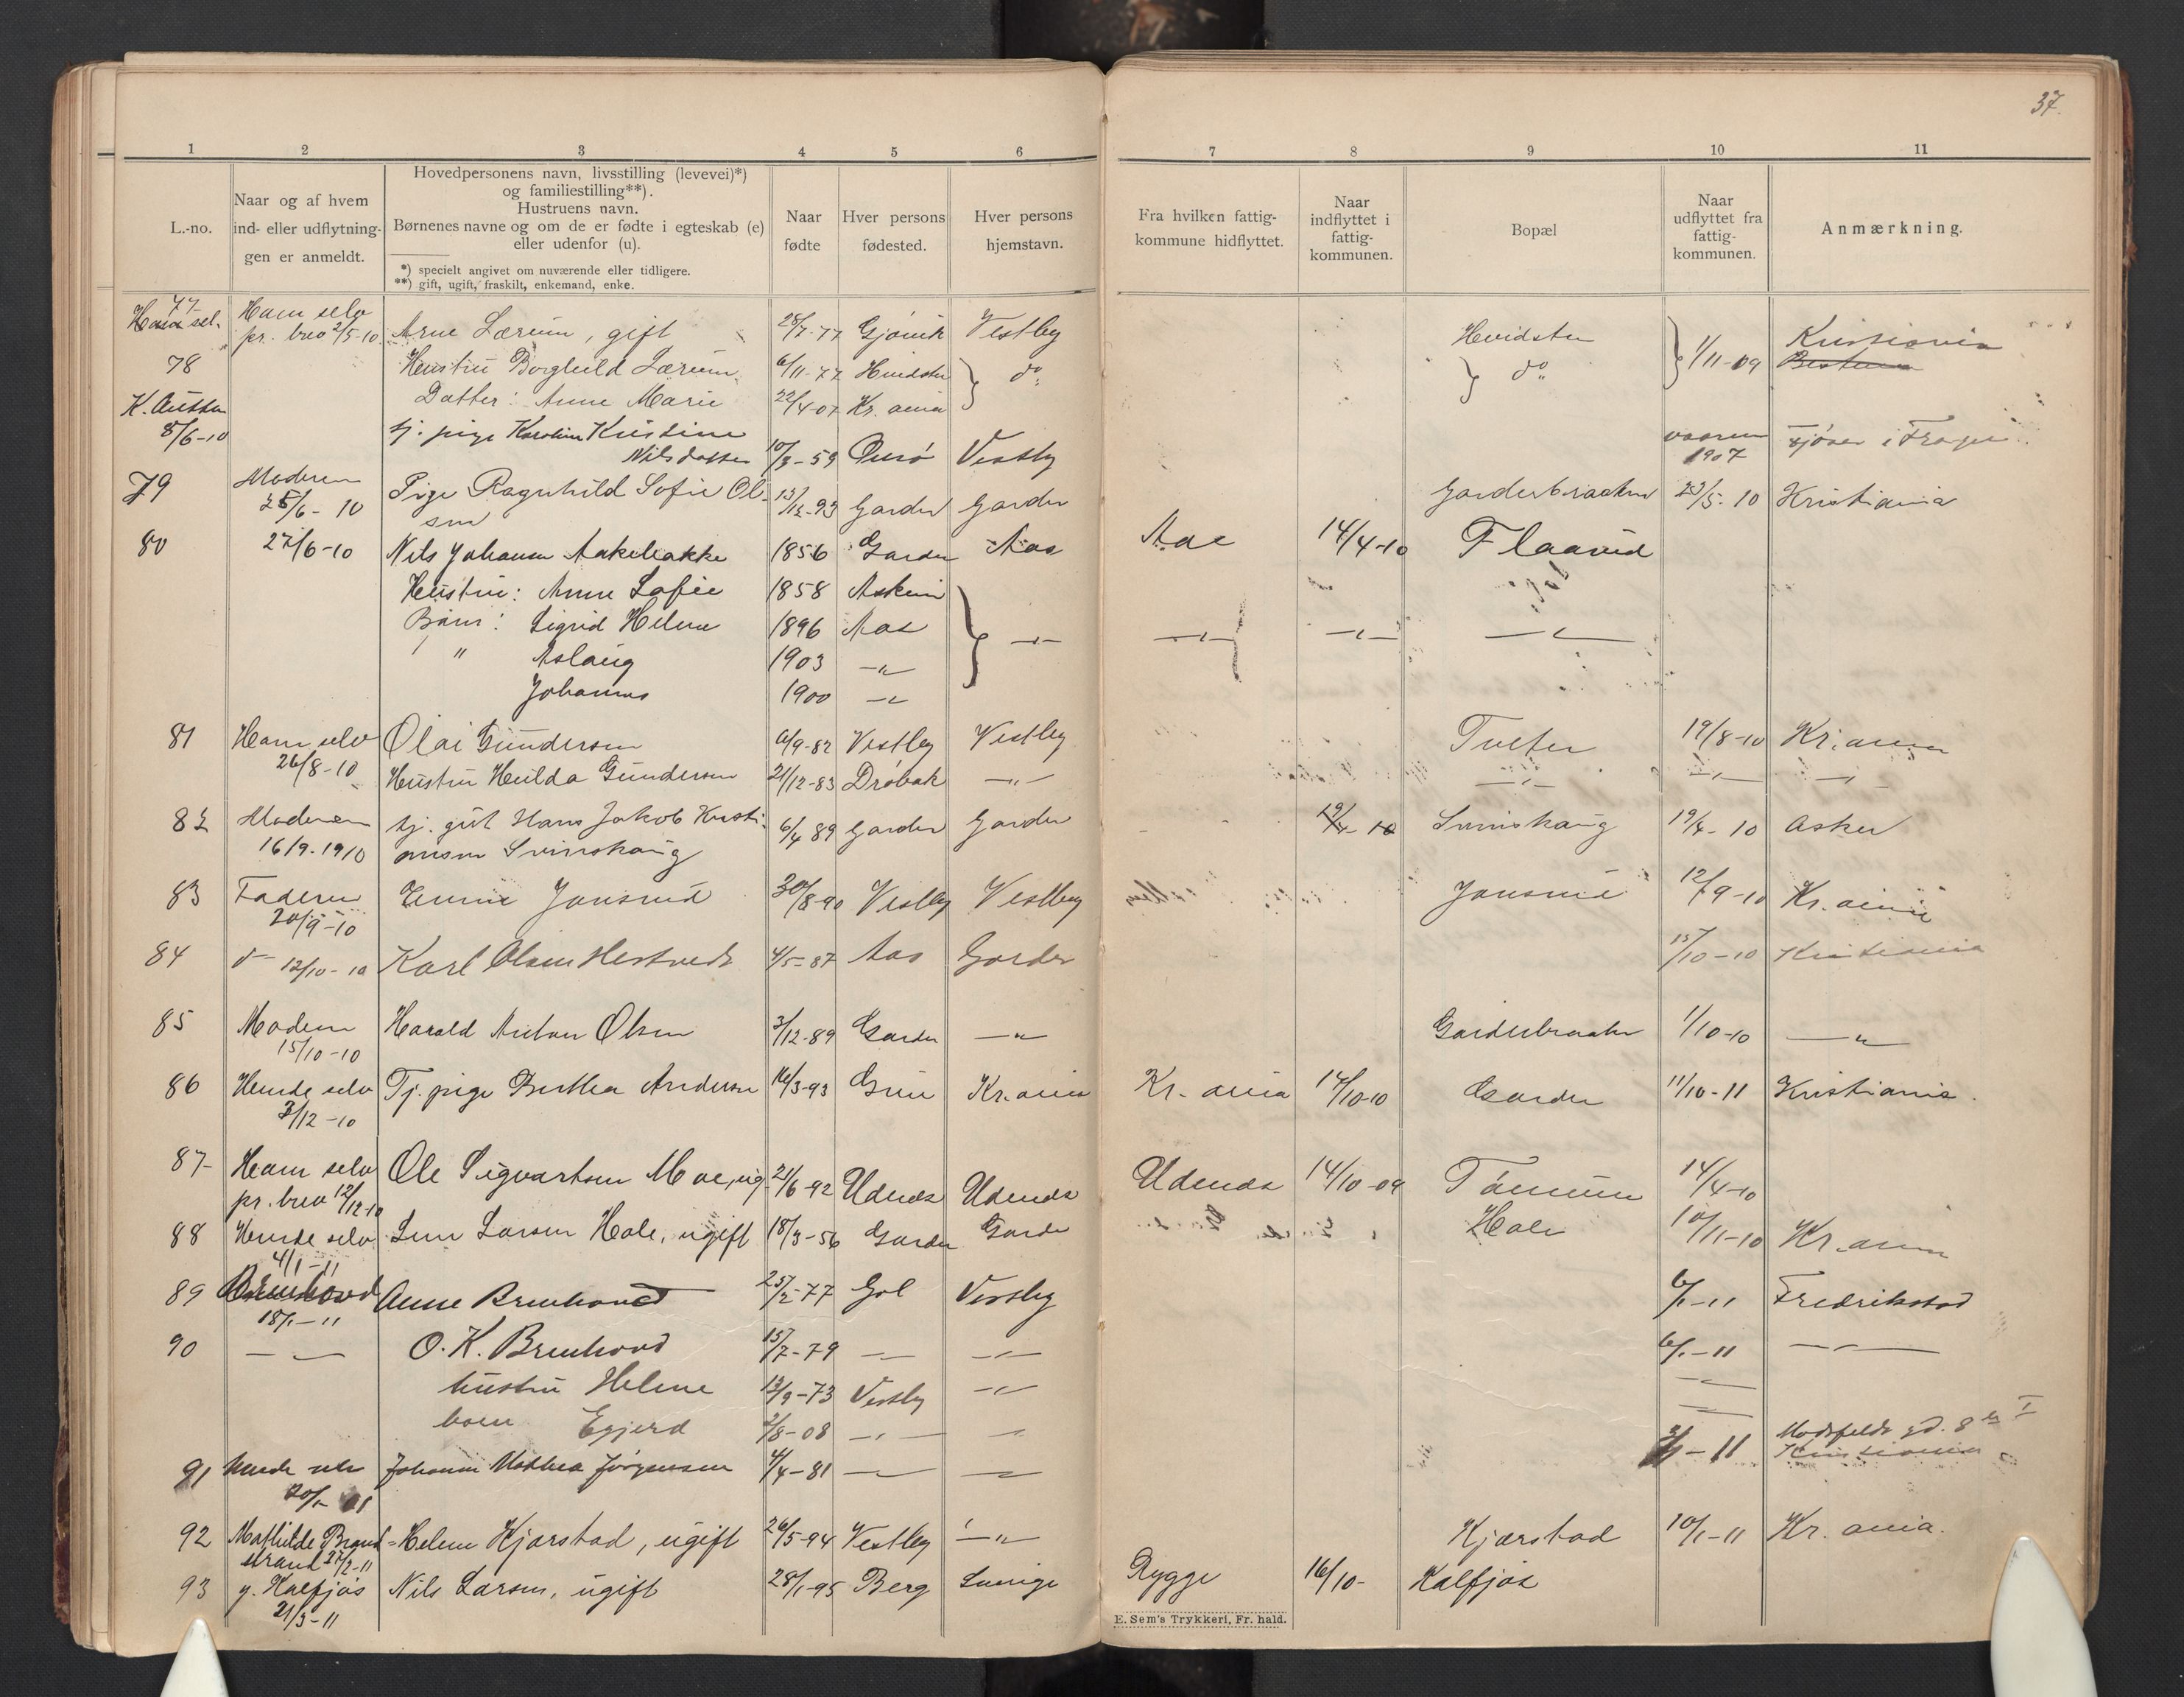 37.
1 2 3 4 5 6 7 8 9 10 11
L.-no.
Naar og af hvem
ind- eller udflytnin-
gen er anmeldt.
Hovedpersonens navn, livsstilling (levevei)*)
og familiestilling**).
Hustruens navn.
Børnenes navne og om de er fødte i egteskab (e)
eller udenfor (u).
*) specielt angivet om nuværende eller tidligere.
**) gift, ugift, fraskilt, enkemand, enke.
Naar
fødte
Hver persons
fødested.
Hver persons
hjemstavn.
Fra hvilken fattig-
kommune hidflyttet.
Naar
indflyttet i
fattig-
kommunen.
Bopæl
Naar
udflyttet fra
fattig-
kommunen.
Anmærkning.
77 Ham selv
pr. brev 2/5-10 Arne Lærum, gift 28/7-77 Gjøvik Vestby Hvidsten 1/11-09 Kristiania
78 Hustru Borghild Lærum 6/11-77 Hvidsten do do
Datter: Anne Marie 22/4-07 Kr. ania
8/6-10 tj. pige Karoline Kristine
Nilsdatter 10/3-59 Vestby vaaren 1907
79 Moderen
25/6-10 Pige Ragnhild Sofie Ol-
sen 13/12-93 Garder Garder Garderbraaten 23/5-10 Kristiania
80 27/6-10 Nils Johansen Aakebakke 1856 Garder Aas Aas 14/4-10 Flaarud
Hustru: Anne Sofie 1858 Askim
Børn: Sigrid Helene 1896 Aas -"- -"- -"- -"-
" Aslaug 1903 -"-
Johannes 1900 -"-
81 Ham selv
26/8-10 Olai Gundersen 6/9-82 Vestby Vestby Tveter 19/8-10 Kr. ania
Hustru Hulda Gundersen 21/12-83 Drøbak -"- -"- -"- -"-
82 Moderen
16/9-1910 tj. gut Hans Jakob Kristi-
ansen Svinskaug 6/4 89 Garder Garder 19/4-10 Svinskaug 19/4-10 Asker
83 Faderen
20/9-10 Emma Jonsrud 30/8-90 Vestby Vestby Jonsrud 12/9-10 Kr. ania
84 12/10-10 Karl Olsen Hestvedt 4/5-87 Aas Garder 15/10-10 Kristiania
85 Modern
15/10-10 Harald Anton Olsen 3/12-89 Garder -"- Garderbraaten 1/10-10 -"-
86 Hende selv
3/12-10 Tj. pige Berthea Andersen 16/3-93 Kr. ania Kr. ania 14/10-10 Garder 11/10-11 Kristiania.
87 Ham selv
pr. brev 12/12-10 Ole Sigvartsen Moe, ug. 21/6-92 Udenæs Udenæs Udenæs 14/10-09 14/4-10
88 Hende selv
4/1-11 Larsen Hole, ugift 18/3-56 Garder Garder Hole 10/11-10 Kr. ania
89 Brenhovd
18/1-11 Anne Brenhovd 25/2-77 Gol Vestby 6/1-11 Fredrikstad
90 -"- O. K. Brenhovd 15/7-79 -"- -"- 6/1-11 -"-
hustru Helene 13/9-73 Vestby -"- -"-
barn Egjerd 2/8-08 -"- -"- -"-
91 Hende selv
20/1-11 Johanne Mathea Jørgensen 4/4-81 -"- -"- -11 Modsfeldts gd. 8 I
Kristiania
92 Mathilde Brand-
strand 27/2-11 Helene Kjærstad, ugift 26/5-94 Vestby -"- Kjærstad 10/1-11 Kr. ania.
93 g. Kalfjøs
21/3-11 Nils Larsen, ugift 28/1-95 Berg Sverige Rygge 16/10- Kalfjøs
E. Sem's Trykkeri, Fr. hald.